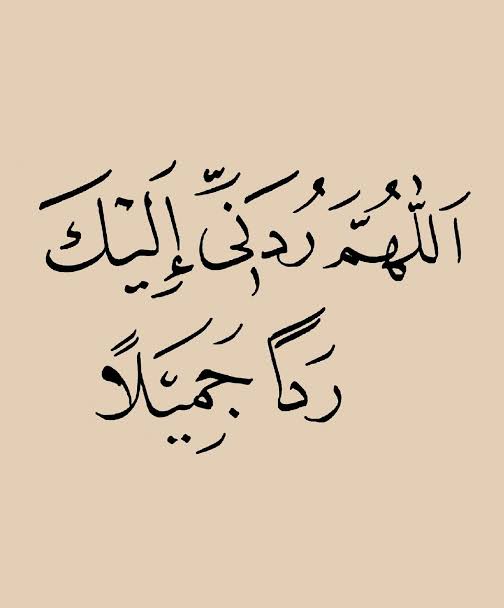 اَللّٰهُمَّ رُدَنِيّ إِلَيْكَ
رَداً جَمِيَلاً